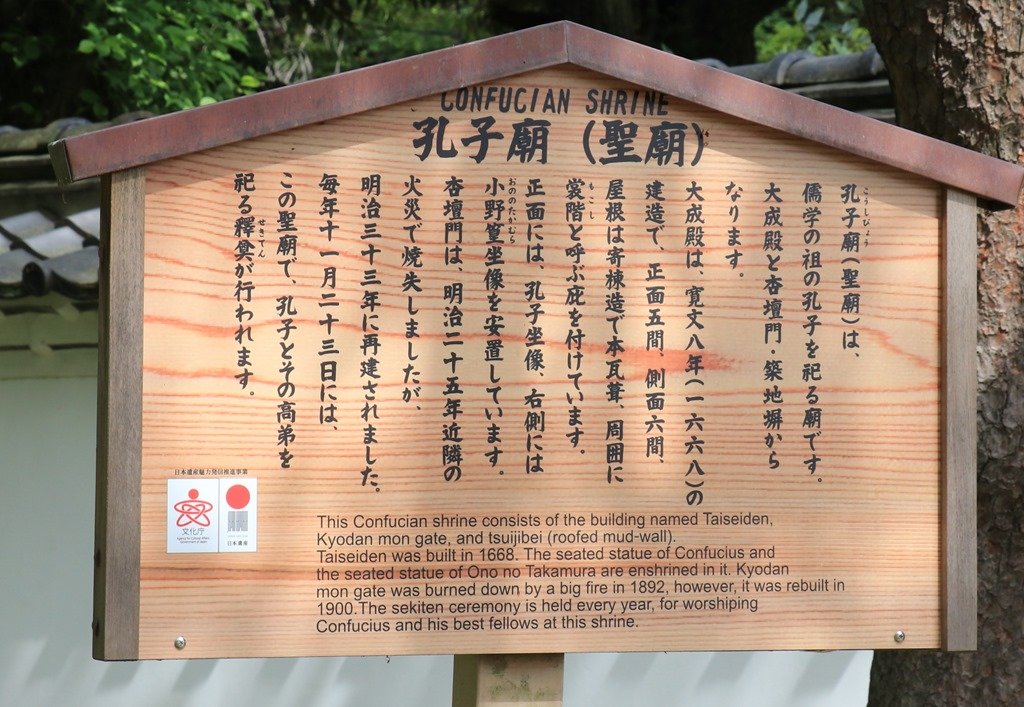 CONFUCIAN SHRINE
孔子廟(聖廟)
孔子廟(聖廟)は、
儒学の祖の孔子を祀る廟です。
大成殿と杏壇門・築地塀から
なります。
大成殿は、寛文八年(一六六八)の
建造で、正面五間、側面六間、
屋根は寄棟造で本瓦葺、周囲に
裳階と呼ぶ庇を付けています。
正面には、孔子坐像、右側には
小野篁坐像を安置しています。
杏壇門は、明治二十五年近隣の
火災で焼失しましたが、
明治三十三年に再建されました。
毎年十一月二十三日には、
この聖廟で、孔子とその高弟を
祀る釋奠が行われます。
こうしびょう
もこし
おののたかむら
せきてん
日本遺産魅力発信推進事業
文化庁
日本遺産
This Confucian shrine consists of the building named Taiseiden,
Kyodan mon gate, and tsuijibei (roofed mud-wall).
Taiseiden was built in 1668. The seated statue of Confucius and
the seated statue of Ono no Takamura are enshrined in it. Kyodan
mon gate was burned down by a big fire in 1892, however, it was rebuilt in
1900.The sekiten ceremony is held every year, for worshiping
Confucius and his best fellows at this shrine.